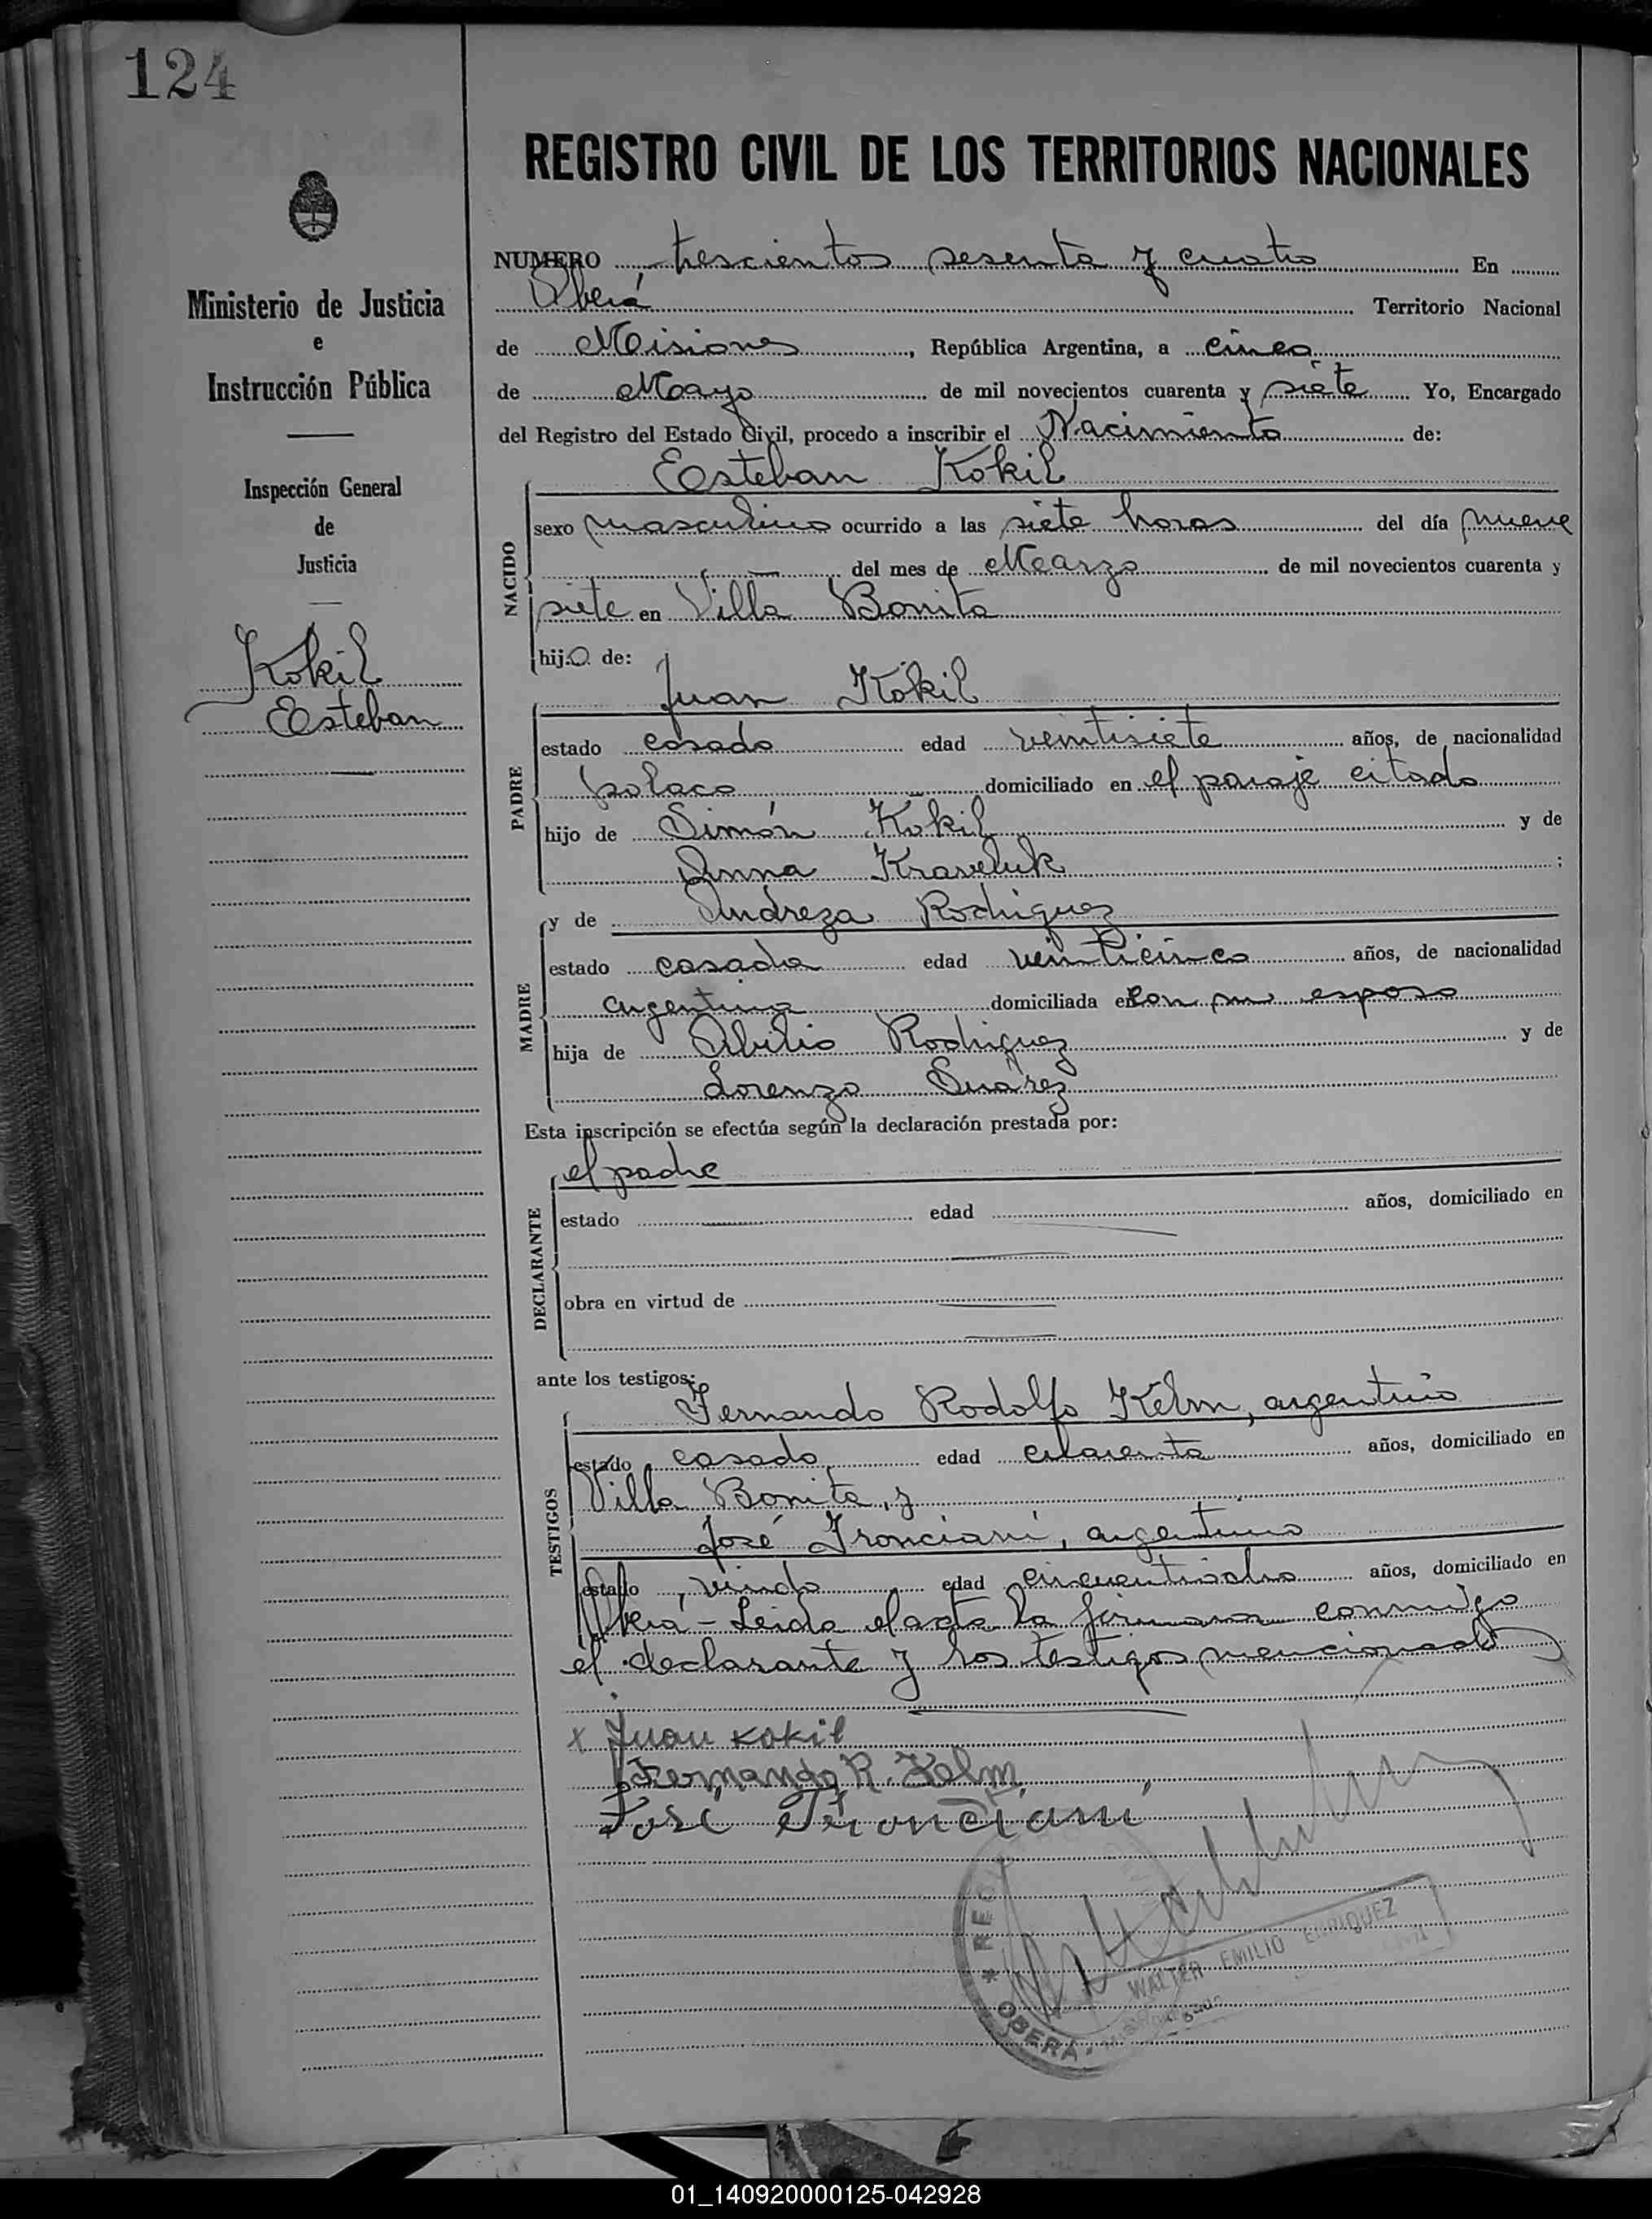 124
REGISTRO CIVIL DE LOS TERRITORIOS NACIONALES
Ministerio de Justicia
e
Instrucción Pública
Inspección General
de
Justicia
Kokil
Esteban
NUMERO trescientos sesenta y cuatro En
Oberá Territorio Nacional
de Misiones, República Argentina, a cinco
de Mayo de mil novecientos cuarenta y siete Yo, Encargado
del Registro del Estado Civil, procedo a inscribir el Nacimiento de:
Esteban Kokil
NACIDO
sexo masculino ocurrido a las siete horas del día nueve
del mes de Marzo de mil novecientos cuarenta y
siete en Villa Bonita
hijo de:
Juan Kokil
PADRE
estado casado edad veintisiete años, de nacionalidad
polaco domiciliado en el paraje citado
hijo de Simón Kokil y de
Anna Kraveluk ;
y de Andreza Rodriguez
MADRE
estado casada edad veinticinco años, de nacionalidad
argentina domiciliada en con su esposo
hija de Abilio Rodriguez y de
Lorenza Suárez
Esta inscripción se efectúa según la declaración prestada por:
el padre
DECLARANTE
estado edad años, domiciliado en
obra en virtud de
ante los testigos:
Fernando Rodolfo Kelm, argentino
TESTIGOS
estado casado, edad cuarenta años, domiciliado en
Villa Bonita, y
José Tronciani, argentino
estado, viudo edad cincuentiocho años, domiciliado en
Oberá - Leida el acta la firmaron conmigo
el declarante y los testigos mencionados
x Juan Kokil
Fernando R. Kelm
José Tronciani
* REG
OBERÁ
WALTER EMILIO ENRIQUEZ
01_140920000125-042928